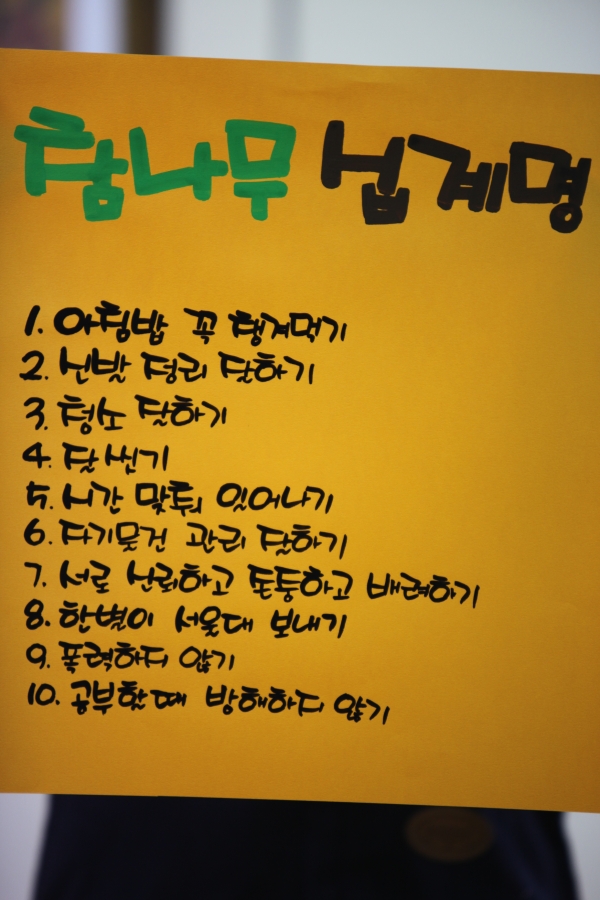 참나무 십계명
1. 아침밥 꼭 챙겨먹기
2. 신발 정리 잘하기
3. 청소 잘하기
4. 잘 씻기
5. 시간 맞춰 일어나기
6. 자기물건 관리 잘하기
7. 서로 신뢰하고 존중하고 배려하기
8. 한별이 서울대 보내기
9. 폭력하지 않기
10. 공부할때 방해하지 않기